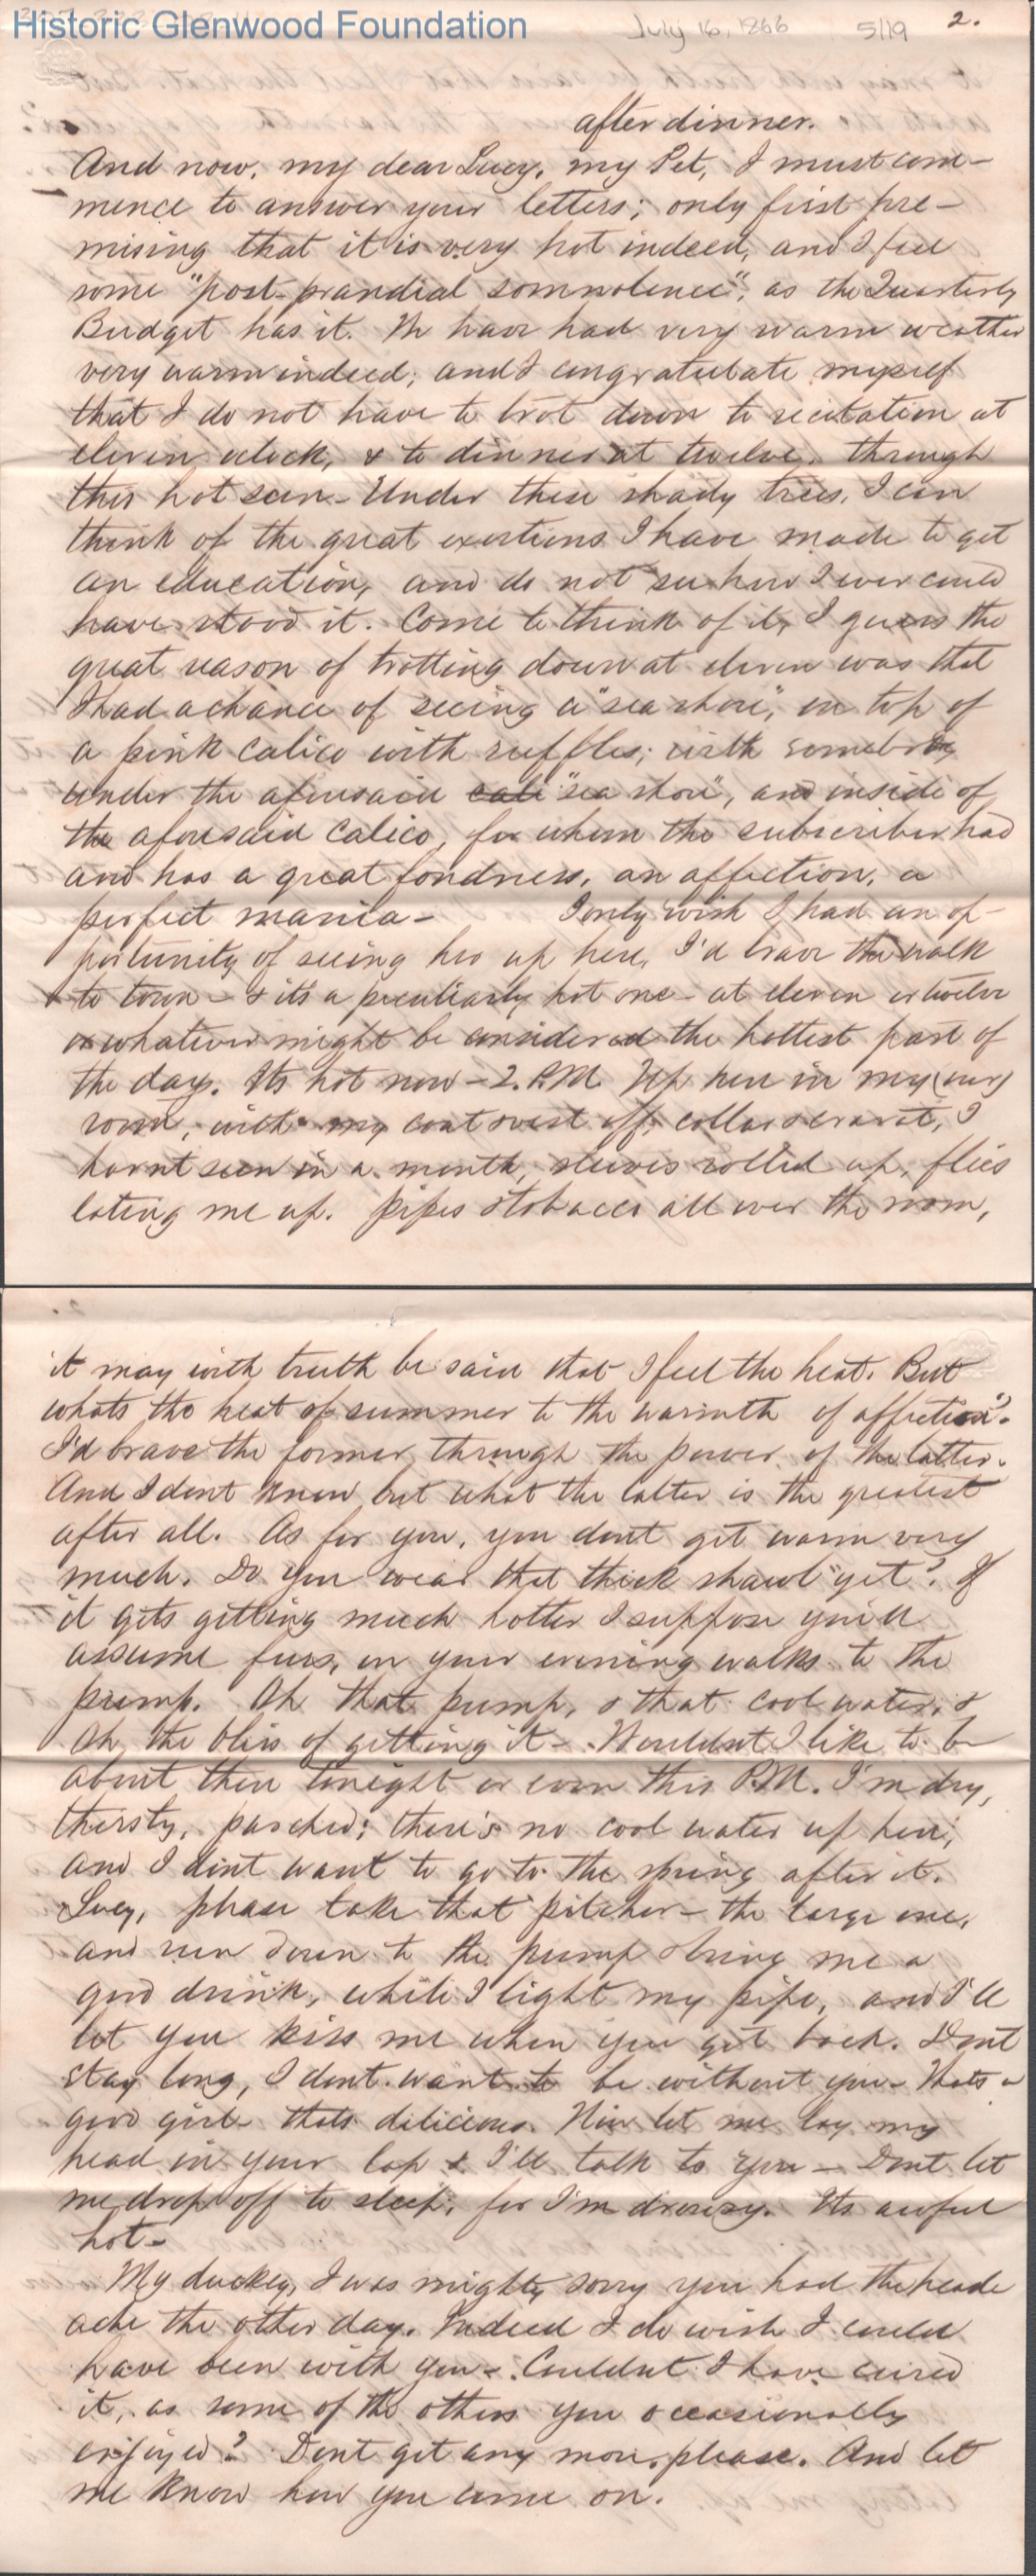 Historic Glenwood Foundation
July 16, 1866 5/19 2.
after dinner.
And now, my dear Lucy, my Pet, I must com-
mence to answer your letters; only first pre-
mising that it is very hot indeed, and I feel
some "post-prandial somnolence", as the Quarterly
Budget has it. We have had very warm weather
very warm indeed; and I congratulate myself
that I do not have to trot down to recitation at
eleven oclock, & to dinner at twelve, through
this hot sun - Under these shady trees, I can
think of the great exertions I have made to get
an education, and do not see how I ever could
have stood it. Come to think of it, I guess the
great reason of trotting down at eleven was that
I had a chance of seeing a "sea shore", on top of
a pink calico with ruffles; with somebody
under the aforesaid cali "sea shore", and inside of
the aforesaid calico, for whom the subscriber had
and has a great fondness, an affection, a
perfect mania - I only wish I had an op-
portunity of seeing her up here, I'd brave the walk
to town - & its a peculiarly hot one - at eleven or twelve
or whatever might be considered the hottest part of
the day. Its hot now - 2. P.M. Up here in my (our)
room, with my coat & vest off, collar & cravat, I
havnt seen in a month, sleeves rolled up, flies
eating me up. pipes & tobacco all over the room,
it may with truth be said that I feel the heat. But
whats the heat of summer to the warmth of affection?
I'd brave the former, through the power of the latter.
And I dont know but what the latter is the greatest
after all. As for you, you dont get warm very
much. Do you wear that thick shawl yet? If
it gets getting much hotter I suppose you'll
assume furs, in your evening walks to the
pump. Oh that pump, & that cool water, &
Oh the bliss of getting it - Wouldnt I like to be
about there tonight or even this P.M. I'm dry,
thirsty, parched; there's no cool water up here,
and I dont want to go to the spring after it.
Lucy, please take that pitcher - the large one,
and run down to the pump & bring me a
good drink, while I light my pipe, and I'll
let you kiss me when you get back. Dont
stay long, I dont want to be without you - Thats a
good girl - thats delicious. Now let me lay my
head in your lap & I'll talk to you - Dont let
me drop off to sleep, for I'm drowsy. Its awful
hot -
My duckey, I was mighty sorry you had the head
ache the other day. Indeed I do wish I could
have been with you - Couldnt I have cured
it, as some of the others you occasionally
enjoyed? Dont get any more, please. And let
me know how you come on.